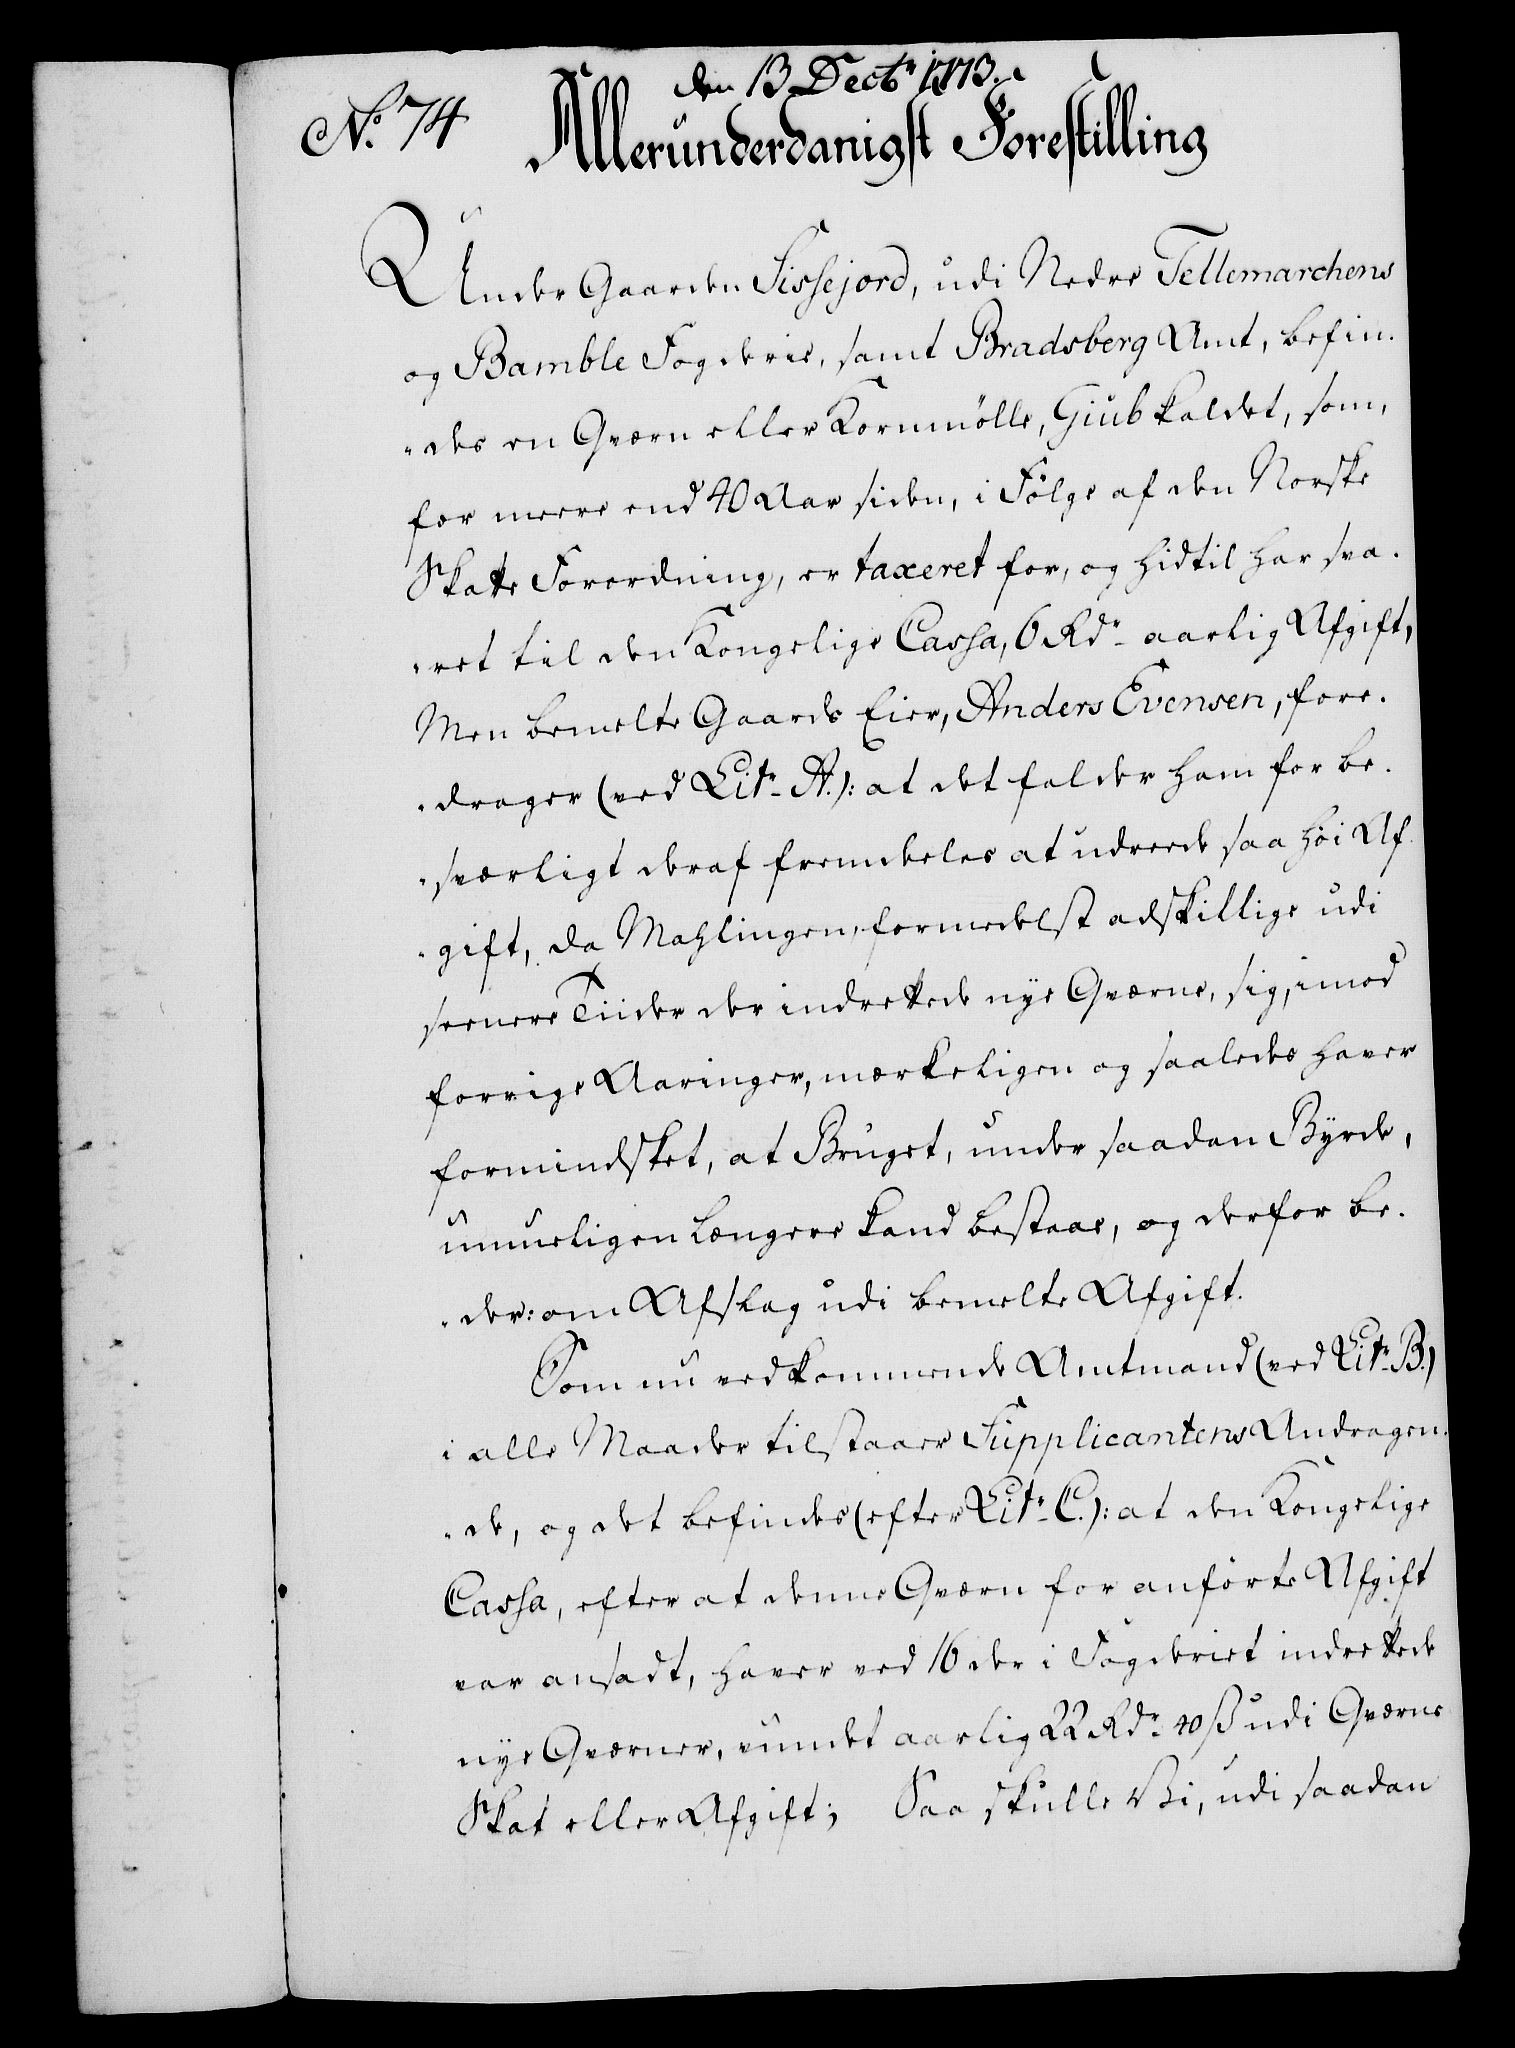 den 13 Dectr 1773.
No. 74
Allerunderdanigst Forestilling
Under Gaarden Sissejord, udi Nedre Tellemarchens
og Bamble Fogderie, samt Bradsberg Amt, befin-
-des en Qværn eller Kornmölle, Giub kaldet, som,
for meere end 40 Aar siden, i Fölge af den Norske
Skatte Forordning, er taxeret for, og hidtil har sva-
-ret til den Kongelige Cassa, 6 Rdr aarlig Afgift,
Men bemelte Gaards Eier, Anders Evensen, fore-
-drager (ved Litr A.): at det falder ham for be-
-sværligt deraf fremdeles at udreede saa høi Af-
-gift, da Mahlingen, formedelst adskillige udi
seenere Tiider der indrettede nye Qværne, sig, imod
forrige Aaringer, mærkeligen og saaledes haver
formindsket, at Bruget, under saadan Byrde,
umueligen længere kand bestaae, og derfor be-
-der: om Afslag udi bemelte Afgift.
Som nu vedkommende Amtmand (ved Litr B.)
i alle Maader tilstaaer Supplicantens Andragen-
-de, og det befindes (efter Litr C.): at den Kongelige
Cassa, efter at denne Qværn for anförte Afgift
var ansadt, haver ved 16 der i Fogderiet indrettede
nye Qværner, vundet aarlig 22 Rdr 40 ß udi Qværne
Skat eller Afgift; Saa skulle Vi, udi saadan